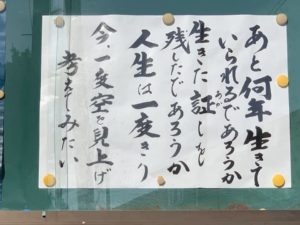 あと何年生きて
いられるであろうか
生きた証しを
あか
残したであろうか
人生は一度きり
今、一度空を見上げ
考えてみたい